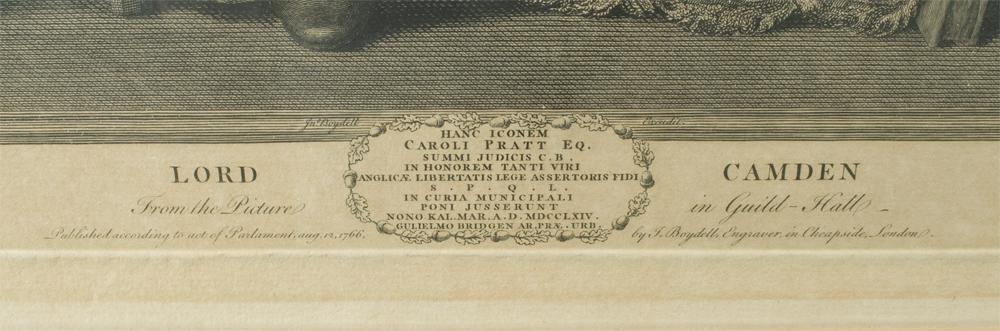 Jno. Boydell Excudit.
HANC ICONEM
CAROLI PRATT EQ.
SUMMI JUDICIS C.B.
IN HONOREM TANTI VIRI
ANGLICÆ LIBERTATIS LEGE ASSERTORIS FIDI
S. P. Q. L.
IN CURIA MUNICIPALI
PONI JUSSERUNT
NONO KAL. MAR. A. D. MDCCLXIV.
GULIELMO BRIDGEN AR. PRÆ. URB.
LORD CAMDEN
From the Picture in Guild-Hall
Published according to act of Parlament, aug. 12, 1766. by J. Boydell, Engraver, in Cheapside, London.